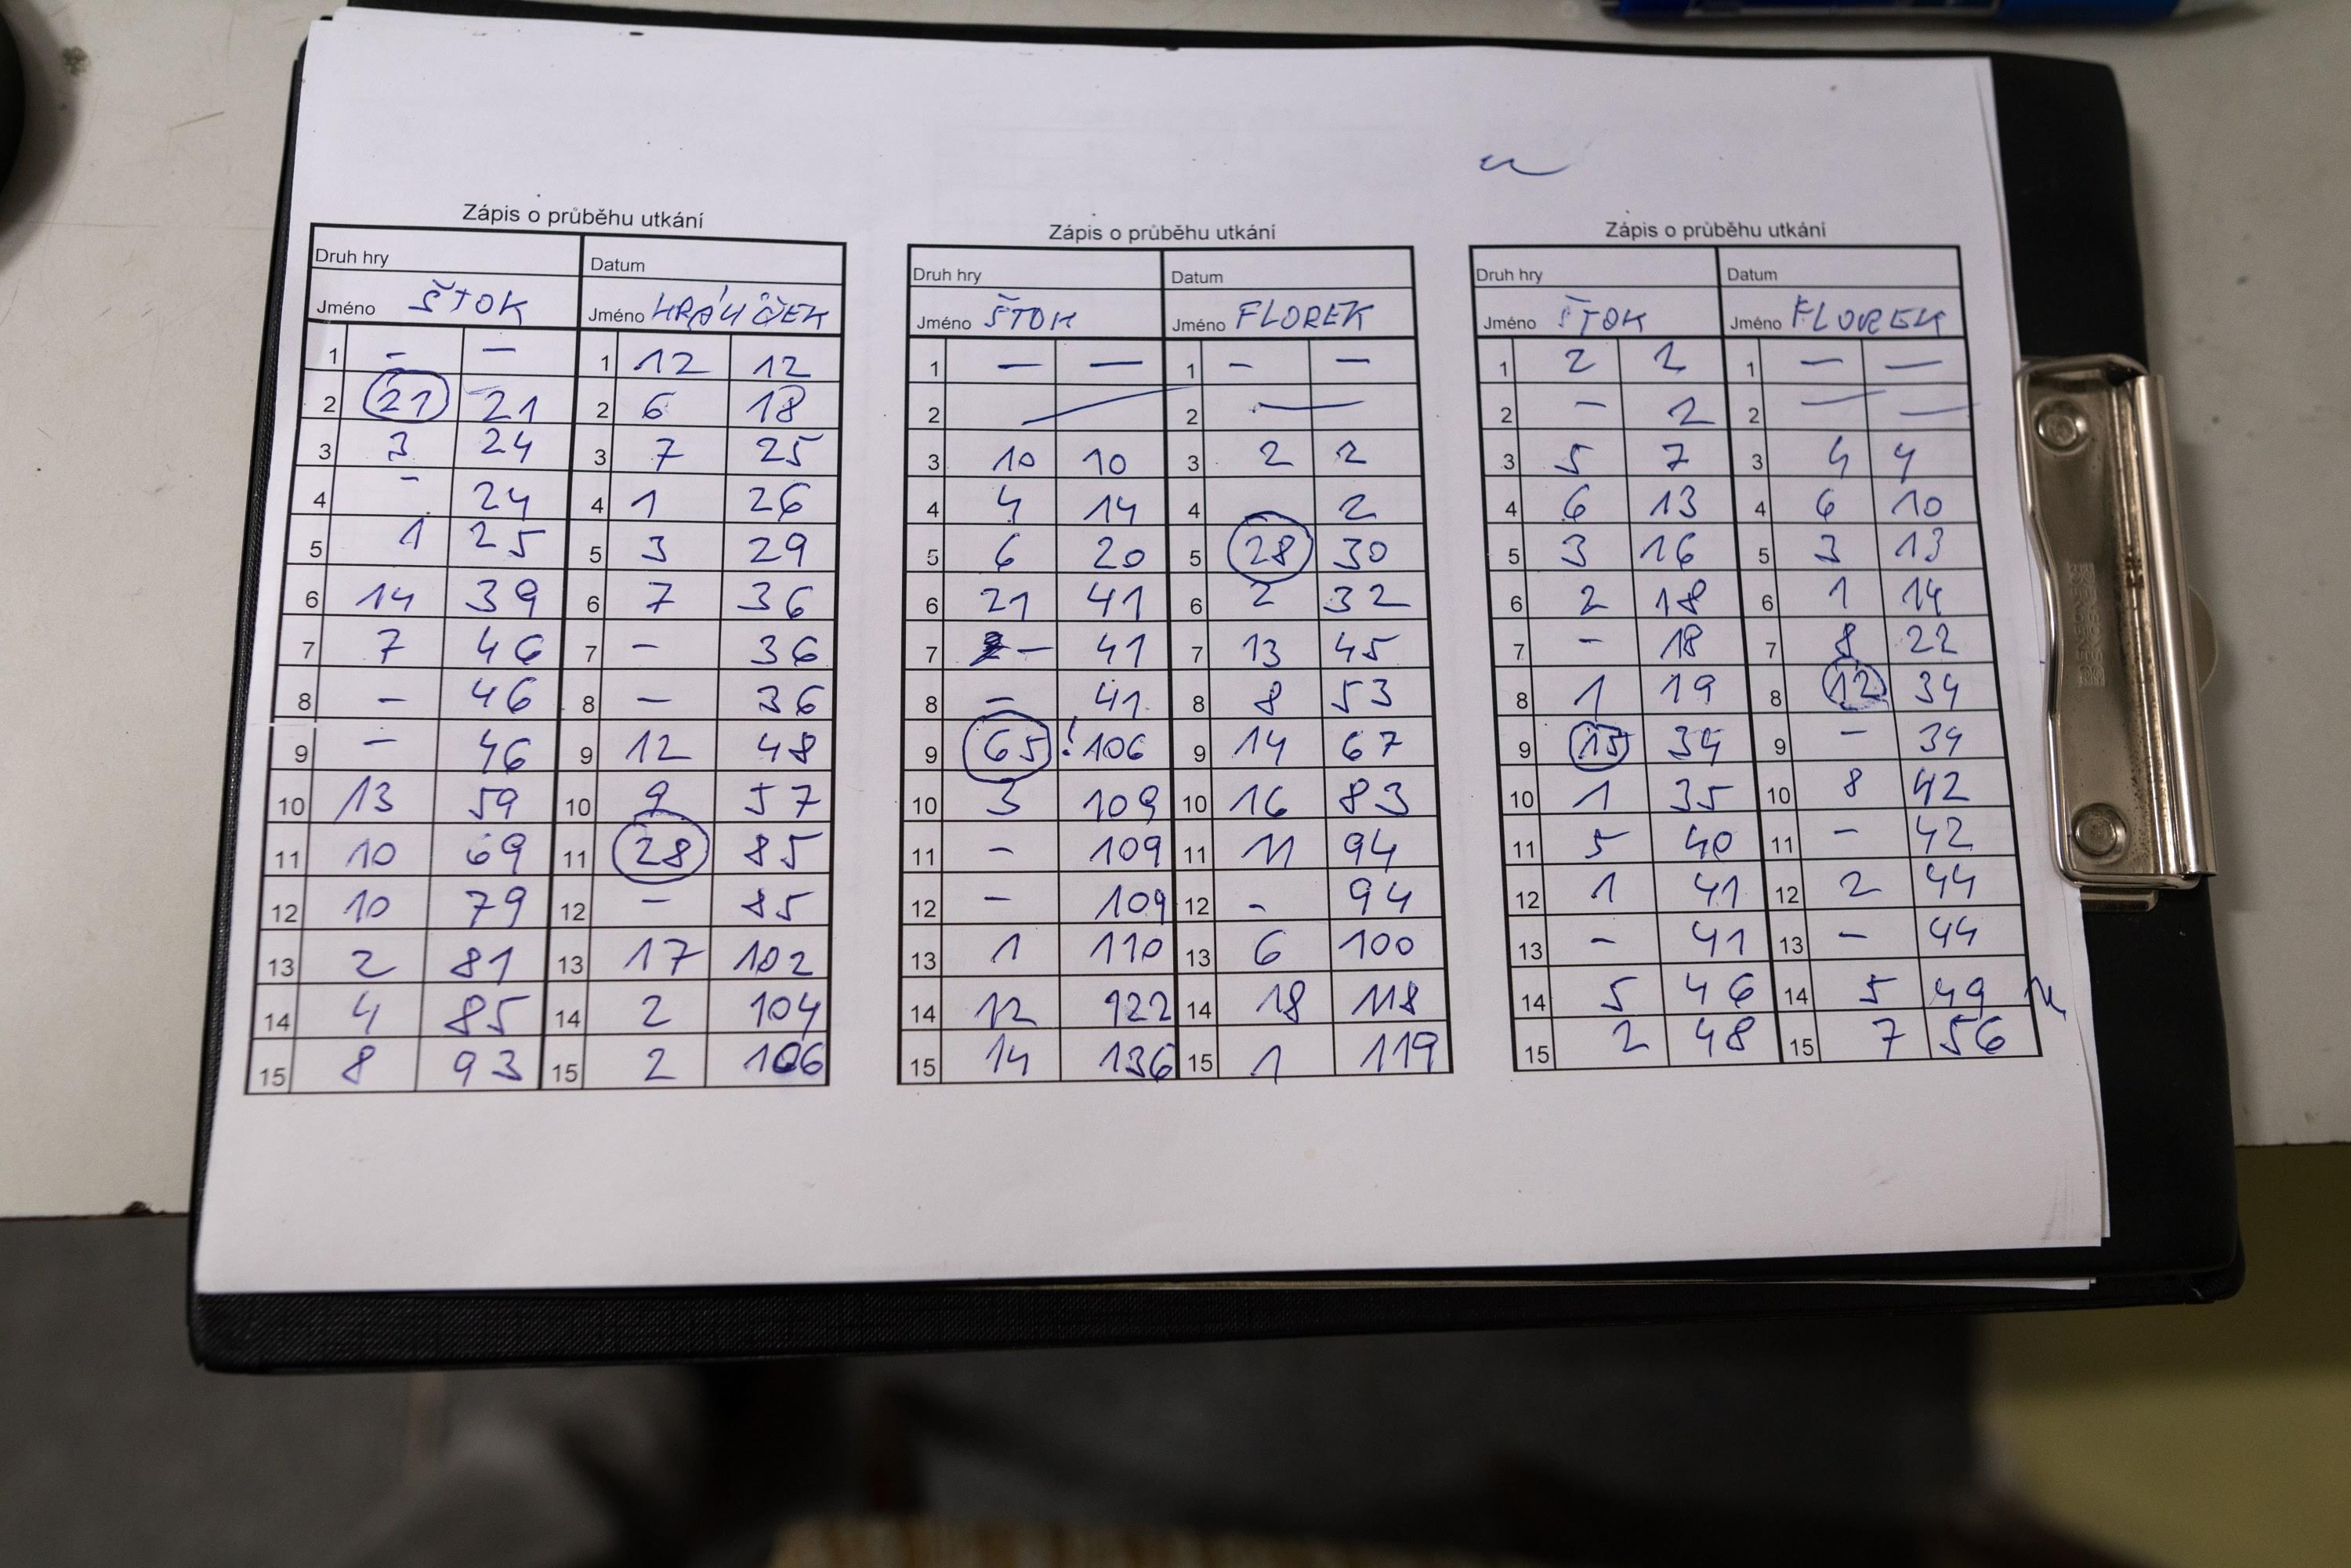 Zápis o průběhu utkání
Druh hry Datum
Jméno ŠTOK Jméno
1 - - 1 12 12
2 21 21 2 6 18
3 3 24 3 7 25
4 - 24 4 1 26
5 1 25 5 3 29
6 14 39 6 7 36
7 7 46 7 - 36
8 - 46 8 - 36
9 - 46 9 12 48
10 13 59 10 9 57
11 10 69 11 28 85
12 10 79 12 - 85
13 2 81 13 17 102
14 4 85 14 2 104
15 8 93 15 2 106
Zápis o průběhu utkání
Druh hry Datum
Jméno ŠTOK Jméno FLOREK
1 - - 1 - -
2 - 2 -
3 10 10 3 2 2
4 4 14 4 - 2
5 6 20 5 28 30
6 21 41 6 2 32
7 - 41 7 13 45
8 - 41 8 8 53
9 65 ! 106 9 14 67
10 3 109 10 16 83
11 - 109 11 11 94
12 - 109 12 - 94
13 1 110 13 6 100
14 12 122 14 18 118
15 14 136 15 1 119
Zápis o průběhu utkání
Druh hry Datum
Jméno ŠTOK Jméno FLOREK
1 2 2 1 - -
2 - 2 2 - -
3 5 7 3 4 4
4 6 13 4 6 10
5 3 16 5 3 13
6 2 18 6 1 14
7 - 18 7 8 22
8 1 19 8 12 34
9 15 34 9 - 34
10 1 35 10 8 42
11 5 40 11 - 42
12 1 41 12 2 44
13 - 41 13 - 44
14 5 46 14 5 49
15 2 48 15 7 56